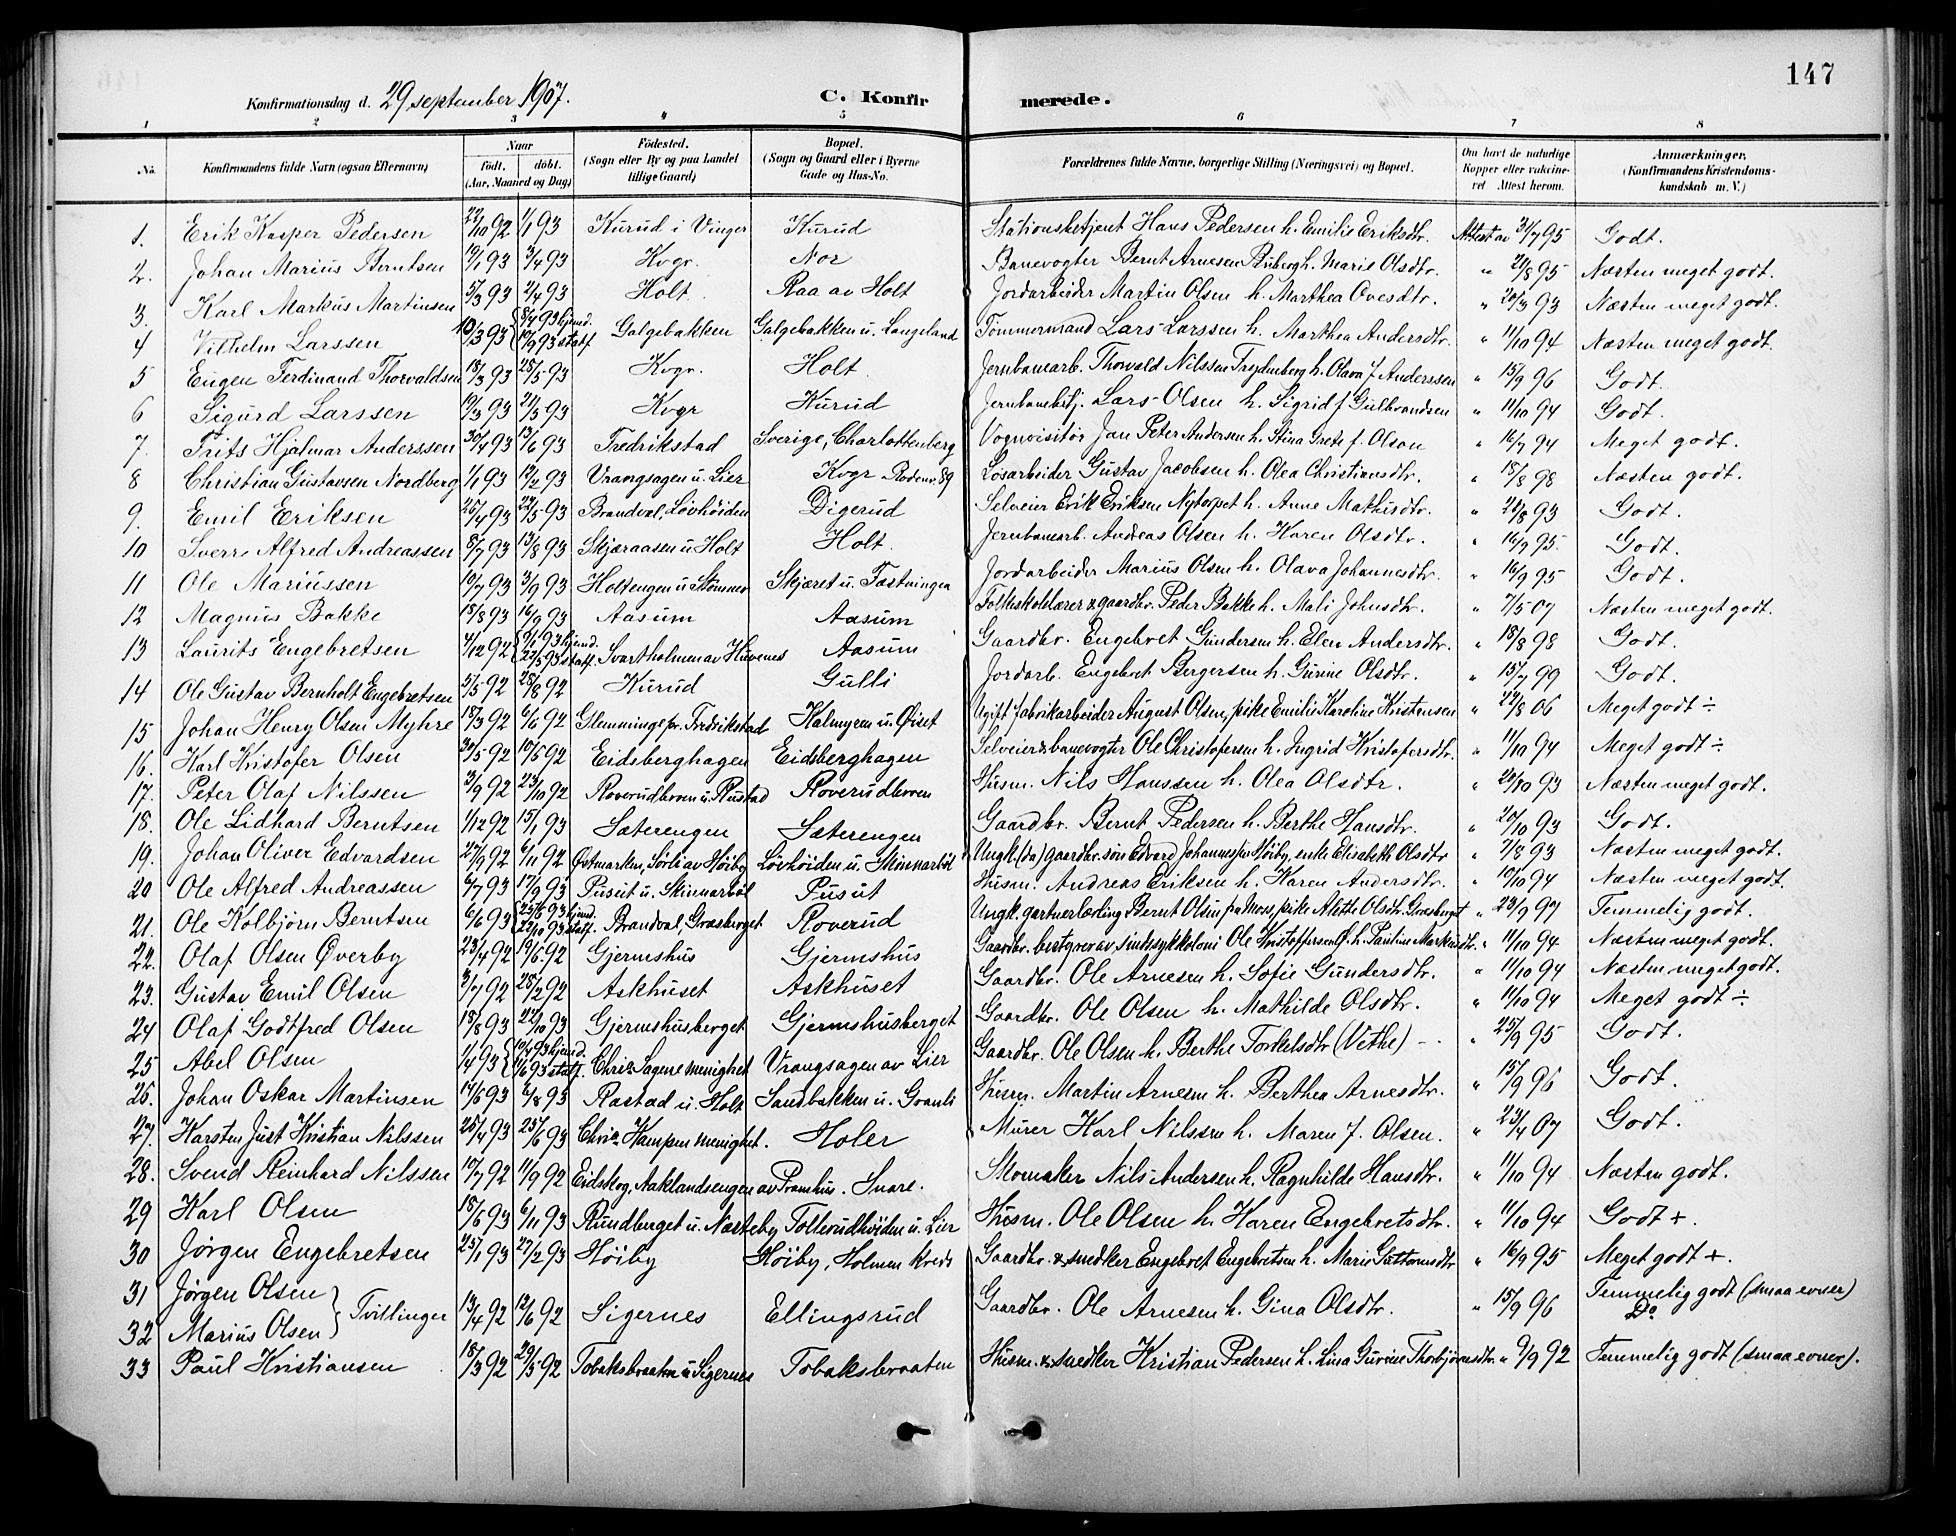 147
Konfirmationsdag d. 29 september 1907. C. Konfirmerede.
1 2 3 4 5 6 7 8
No. Konfirmandens fulde Navn (ogsaa Efternavn) Naar født. døbt. (Aar, Maaned og Dag) Fødested. (Sogn eller By og paa Landet tillige Gaard) Bopæl. (Sogn og Gaard eller i Byerne Gade og Hus-No. Forældrenes fulde Navne, borgerlige Stilling (Næringsvei) og Bopæl. Om havt de naturlige Kopper eller vakcineret Attest herom. Anmærkninger. (Konfirmandens Kristendomskundskab m. V.)
1. Erik Kasper Pedersen 22/10 92 1/1 93 Kurud i Vinger Kurud Stationsbetjent Hans Pedersen h. Emilie Eriksdtr. Attest av 31/7 95 Godt.
2. Johan Marius Berntsen 19/1 93 3/4 93 Kvgr. Nor Banevogter Bernt Arnesen Buberg h. Marie Olsdtr. " 21/8 95 Næsten meget godt.
3. Karl Markus Martinsen 5/3 93 2/4 93 Holt Raa av Holt Jordarbeider Martin Olsen h. Marthea Ovesdtr. " 20/3 93 Næsten meget godt.
4 Vilhelm Larssen 10/3 93 {8/4 93 hjemd. 10/9 93 stadf. Galgebakken Galgebakken u. Langeland Tømmermand Lars Larssen h. Marthea Andersdtr. " 11/10 94 Næsten meget godt.
5 Eugen Ferdinand Thorvaldsen 18/3 93 28/5 93 Kvgr. Holt Jernbanearb. Thorvald Nilssen h. Olava f. Anderssen " 15/9 96 Godt.
6 Sigurd Larssen 19/3 93 21/5 93 Kvgr Kurud Jernbanebetj. Lars Olsen h. Sigrid f. Gulbrandsen " 11/10 94 Godt.
7. Frits Hjalmar Anderssen 30/4 93 13/6 93 Fredrikstad Sverige, Charlottenberg Vognvisitør Jan Peter Andersen h. Stina Grete f. Olson " 16/7 94 Meget godt.
8 Christian Gustavsen Nordberg 1/1 93 12/2 93 Vrangsagen u. Lier Kvgr Rodenr. 89 Løsarbeider Gustav Jacobsen h. Olea Christiansdtr. " 18/8 98 Næsten godt.
9. Emil Eriksen 25/4 93 22/5 93 Brandval, Løvhøiden Digerud Selveier Erik Eriksen Nytorpet h. Anne Mathisdtr. " 28/8 93 Godt.
10 Sverre Alfred Andreassen 8/7 93 13/8 93 Skjæraasen u. Holt Holt. Jernbanearb. Andreas Olsen h. Karen Olsdtr. " 16/9 95. Godt.
11 Ole Mariussen 10/7 93 3/9 93 Holtengen u. Strømner Skjæret u. Fæstningen Jordarbeider Marius Olsen h. Olava Johannesdtr. " 16/9 95 Godt.
12 Magnus Bakke 18/8 93 16/9 93 Aasum Aasum Folkeskolelærer & gaardbr. Peder Bakke h. Mali Johnsdtr. " 7/5 07 Næsten meget godt.
13 Laurits Engebretsen 4/12 92 {9/1 93 hjemd. 22/5 93 stadf. Svartholmen av Huvenes Aasum Gaardbr. Engebret Gundersen h. Elen Andersdtr. " 18/8 98 Godt.
14 Ole Gustav Bernholt Engebretsen 5/5 92 28/8 92 Kurud Gulli Jordarb. Engebret Bergersen h. Gurine Olsdtr. " 15/7 99 Godt.
15 Johan Henry Olsen Myhre 18/3 92 6/6 92 Glemminge pr. Fredrikstad Kalmyren u. Øiset Ugift fabrikarbeider August Olsen, pike Emilie Karoline Kristensen " 22/8 06 Meget godt ÷
16. Karl Kristofer Olsen 30/5 92 10/6 92 Eidsberghagen Eidsberghagen Selveier & banevogter Ole Christofersen h. Ingrid Kristofersdtr. " 11/10 94 Meget godt ÷
17. Peter Olaf Nilssen 3/9 92 23/10 92 Roverudbroen u. Rustad Roverudbroen Husm. Nils Hanssen h. Olea Olsdtr. " 20/10 93 Næsten meget godt.
18. Ole Lidhard Berntsen 1/12 92 15/1 93 Sæterengen Sæterengen Gaardbr. Bernt Pedersen h. Berthe Hansdtr. " 20/10 93 Godt.
19. Johan Oliver Edvardsen 27/9 92 6/11 92 Østmarken, Sørli av Høiby Løvhøiden u. Skinnarbøl Ungk. (da) gaardbr. søn Edvard Johannessen Høiby, enke Elisabeth Olsdtr " 7/8 93 Næsten meget godt.
20 Ole Alfred Andreassen 6/7 93 17/9 93 Pusut u. Skinnarbøl Pusut Husm. Andreas Eriksen h. Karen Andersdtr. " 10/10 94 Næsten meget godt.
21. Ole Kolbjørn Berntsen 6/6 93 {25/6 93 hjemd. 22/10 93 stadf. Brandval, Græsberget Roverud Ungk. gartnerlærling Bernt Olsen fra Moss, pike Alette Olsdtr. Græsberget " 23/9 97 Temmelig godt.
22. Olaf Olsen Øverby 23/4 92 19/6 92 Gjermshus Gjermshus Gaardbr. bestyrer av sindssykkoloni Ole Kristoffersen Ø. h. Pauline Markusdtr. " 11/10 94 Næsten meget godt.
23. Gustav Emil Olsen 3/1 92 28/2 92 Askhuset Askhuset Gaardbr. Ole Arnesen h. Sofie Gundersdtr. " 11/10 94 Næsten meget godt.
24 Olaf Godtfred Olsen 18/8 93 22/10 93 Gjermshusberget Gjermshusberget Gaardbr. Ole Olsen h. Mathilde Olsdtr. " 11/10 94 Meget godt ÷
25 Abel Olsen 1/4 93 {10/4 93 hjemd. 11/6 93 stadf. Chria Sagene menighet Vrangsagen av Lier Gaardbr. Ole Olsen h. Berthe Torkelsdtr (Vethe) - - " 25/9 95 Godt.
26. Johan Oskar Martinsen 17/6 93 6/8 93 Rastad u. Holt Sandbakken u. Granli Husm. Martin Arnesen h. Berthea Arnesdtr. " 15/9 96 Godt.
27. Karsten Just Kristian Nilssen 25/4 93 25/6 93 Chria Kampen menighet. Holer Murer Karl Nilssen h. Maren f. Olsen. " 23/4 07 Godt.
28. Svend Reinhard Nilssen 10/7 92 11/9 92 Eidskog, Aaklandsengen av Pramhus. Snare. Skomaker Nils Andersen h. Ragnhilde Hansdtr. " 11/10 94 Næsten godt.
29 Karl Olsen 18/6 93 6/11 93 Rundberget u. Næsteby Tollerudhøiden u. Lier Husm. Ole Olsen h. Karen Engebretsdtr. " 11/10 94 Godt +.
30 Jørgen Engebretsen 25/1 93 27/2 93 Høiby Høiby, Holmen kreds Gaardbr. & snedker Engebret Engebretsen h. Marie Guttormsdtr " 16/9 95 Meget godt +.
31 Jørgen Olsen } Tvillinger 13/4 92 12/6 92 Sigernes Ellingsrud Gaardbr. Ole Arnesen h. Gina Olsdtr. " 15/9 96 Temmelig godt (smaa evner)
32 Marius Olsen Do
33 Paul Kristiansen 18/3 92 29/5 92 Tobaksbraaten u. Sigernes Tobaksbraaten Husm. & snedker Kristian Pedersen h. Lina Gurine Thorbjørnsdtr. " 9/9 92 Temmelig godt (smaa evner).